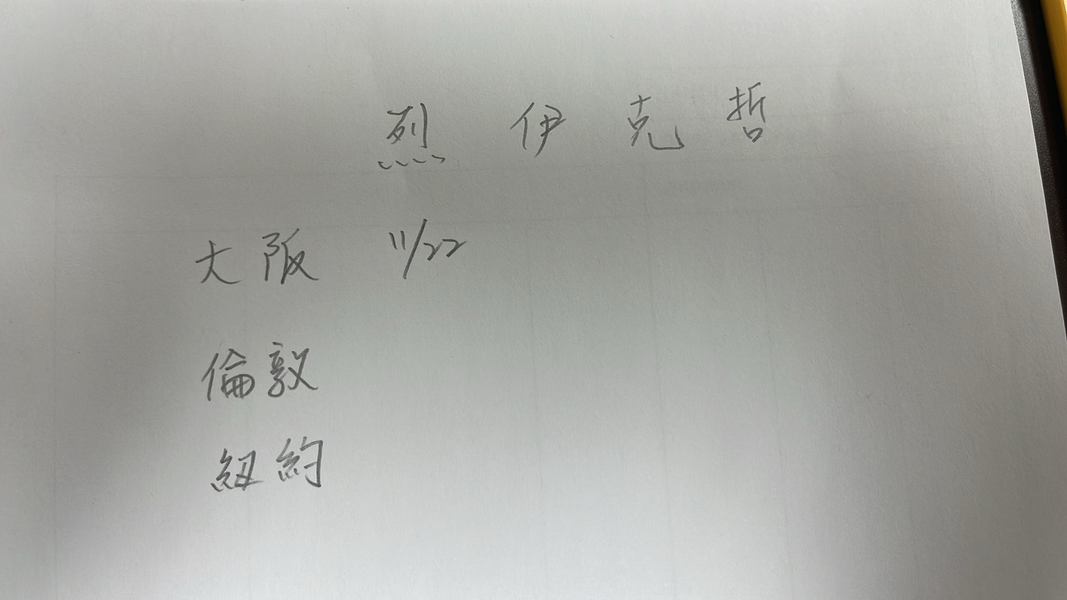 烈 伊 克 哲
大阪 11/22
倫敦
紐約